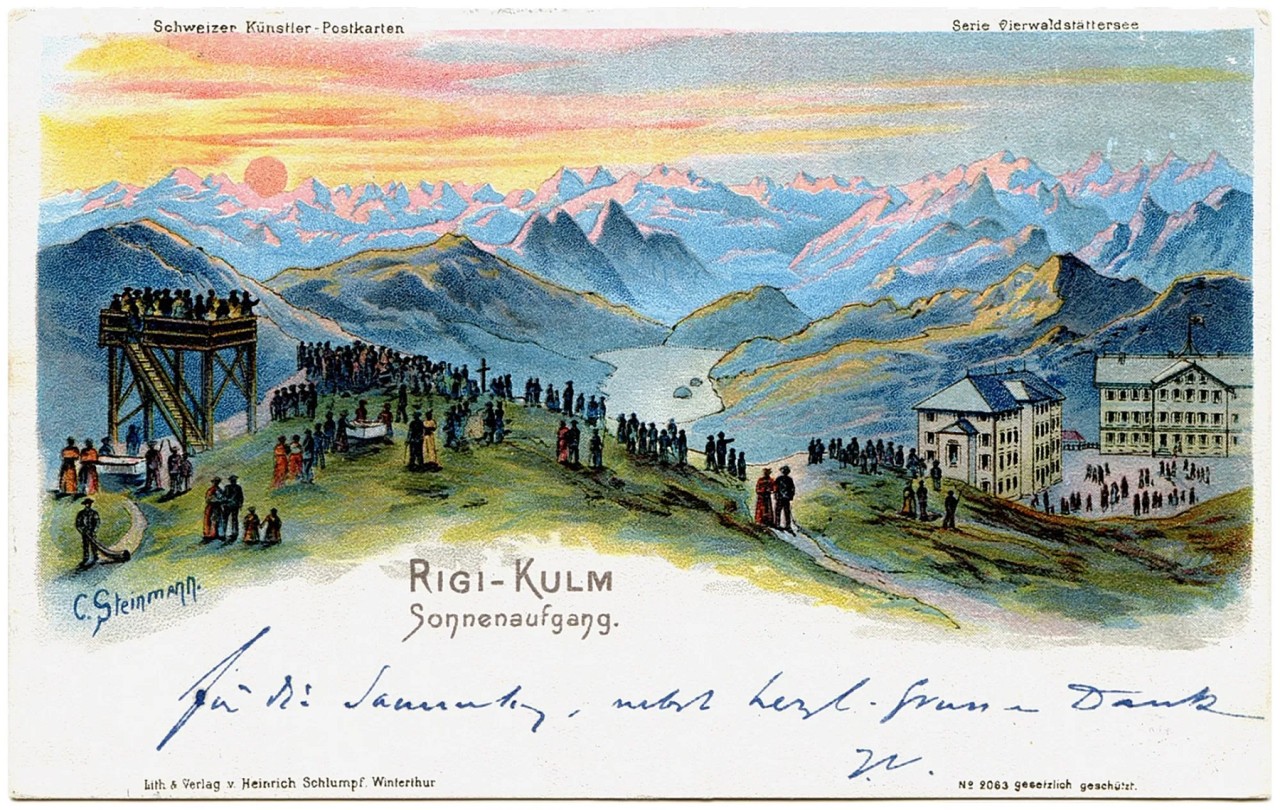 Schweizer Künstler-Postkarten
Serie Vierwaldstättersee
C. Steinmann.
RIGI-KULM
Sonnenaufgang.
für die Sammlung, nebst herzl. Gruss u Dank
Lith & Verlag v. Heinrich Schlumpf. Winterthur
Nº 2063 gesetzlich geschützt.